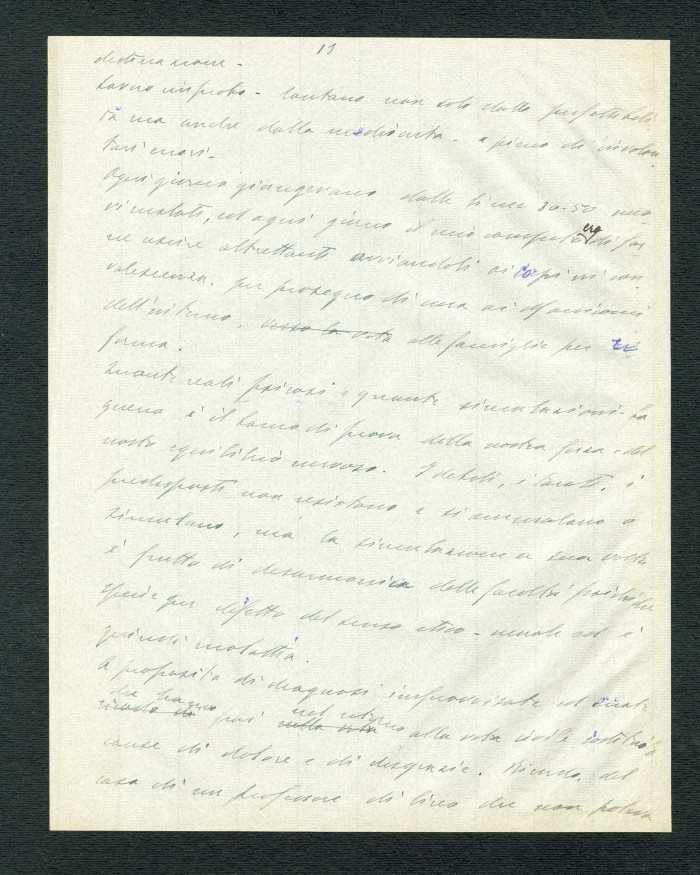 13
destinazione -
Lavoro improbo - lontano non solo dalla perfettibili
tà ma anche dalla mediocrità - e pieno di involon
tari errori.
Ogni giorno giungevano dalle linee 30-50 neuro
vi malati, ed ogni giorno il mio compito era di far
ne uscire altrettanti avviandoli ai
valescenza, per proseguo di cura ai Manicomi
dell'interno, verso la vita alle famiglie per ri
forma.
Quante reali psicosi e quante simulazioni. La
guerra è il banco di prova della nostra forza e del
nostro equilibrio nervoso. I deboli, i tarati, i
predisposti non resistono e si ammalano o
simulano, ma la simulazione a sua volta
è frutto di desarmonica delle facoltà psichiche
specie per difetto del senso etico - morale ed è
quindi malattia.
A proposito di diagnosi improvvisate ed
che hanno poi nella vita nel ritorno alla vita civile costituito
cause di dolore e di disgrazie. Ricordo del
caso di un professore di liceo che non poteva